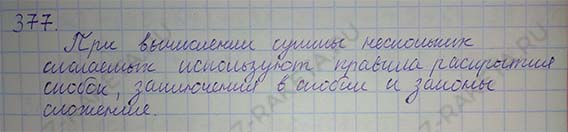 377.
При вычислении суммы нескольких
слагаемых используют правила раскрытия
скобок, заключения в скобки и законы
сложения.